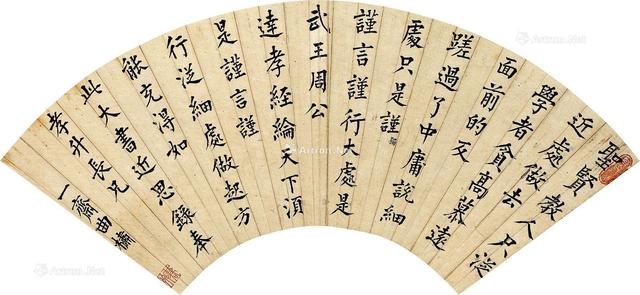 聖賢教人只從
近處做去
學者貪高慕遠
面前的反
蹉過了中庸說細
處只是謹
謹言謹行大處是
武王周公
達孝經綸天下須
是謹言謹
行從細處做起方
能充得如
此大書近思錄奉
孝升長兄
一齋曲
Artron.Net